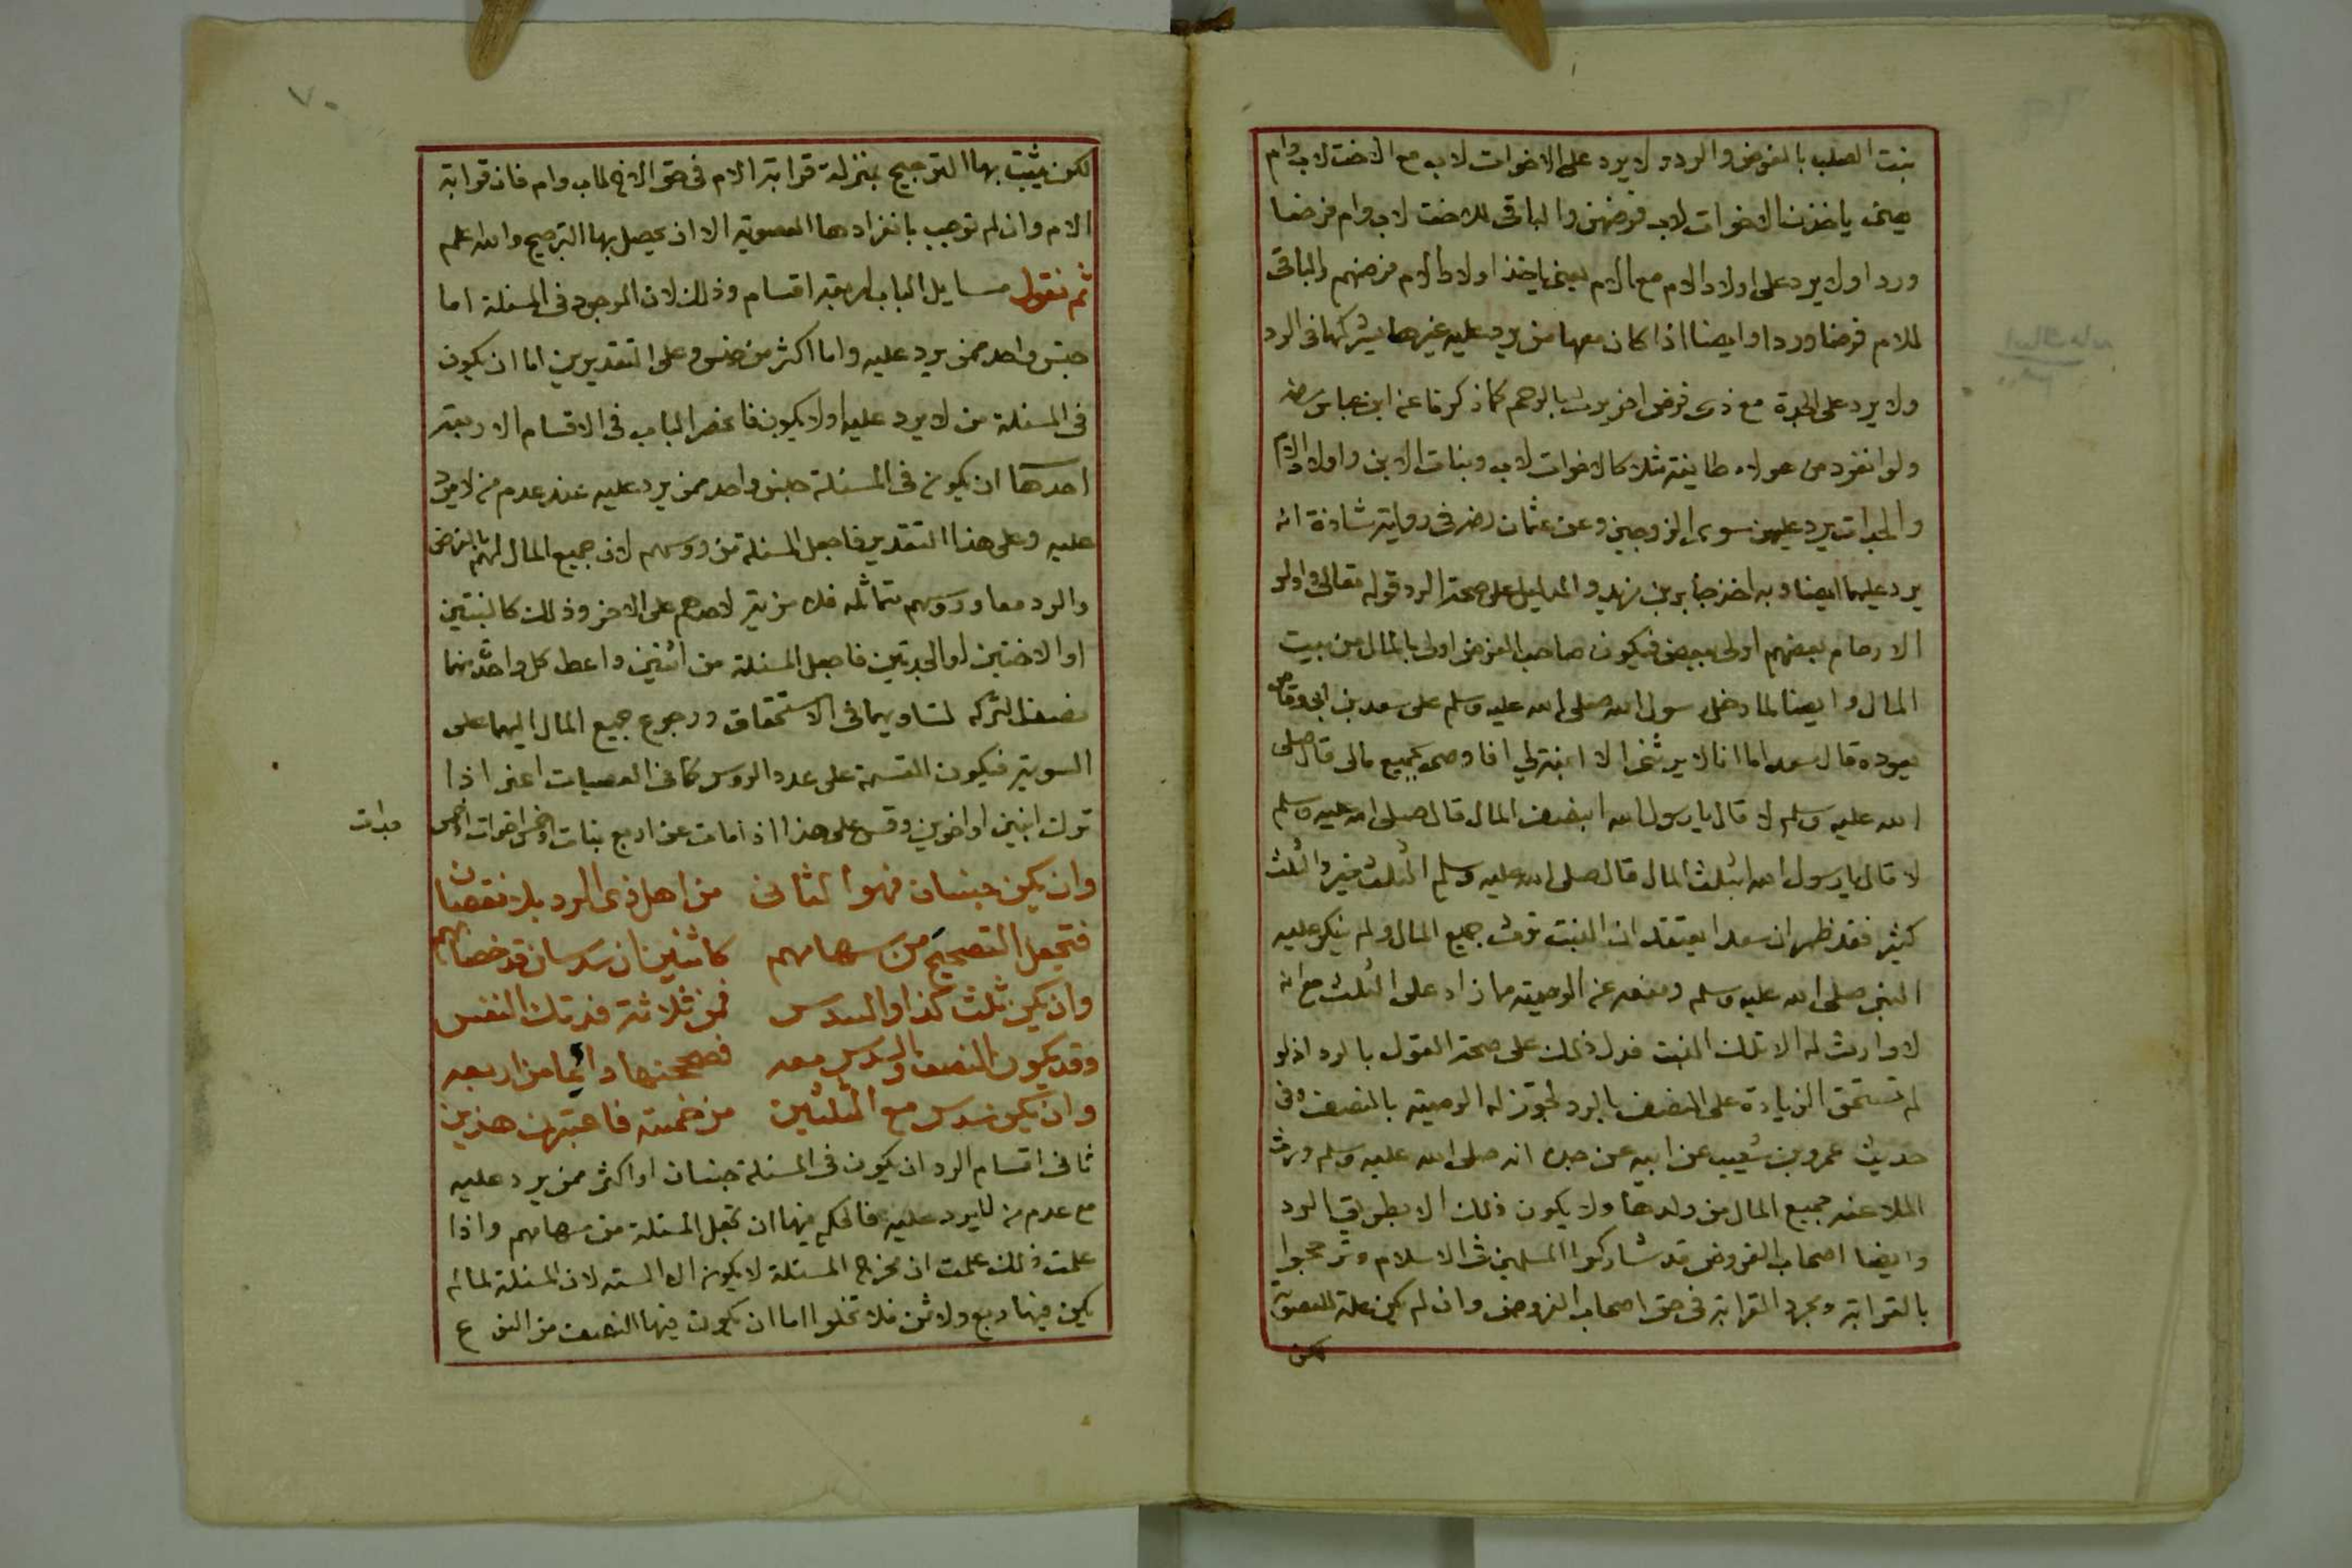 بنت الصلب بالفرض والرد ولا يرد على الاخوات لاب مع الاخت لاب وام
يعني ياخذن الاخوات لاب فرضهن والباقي للاخت لاب وام فرضا
وردا ولا يرد على اولاد الام مع الام يعني ياخذ اولاد الام فرضهم والباقي
للام فرضا وردا وايضا اذا كان معها من يرد عليه غيرها يشركها في الرد
ولا يرد على الجدة مع ذي فرض اخر يرث بالرحم كما ذكرنا عن ابن عباس رضه
ولو انفرد من هولاء طايفة مثلا كالاخوات لاب وبنات الابن واولاد الام
والجدات يرد عليهن سوى الزوجين وعن عثمان رضه في رواية شاذة انه
يرد عليهما ايضا وبه اخذ جابر بن زيد والدليل على صحة الرد قوله تعالى واولو
الارحام بعضهم اولى ببعض فيكون صاحب الفرض اولى بالمال من بيت
المال وايضا لما دخل رسول الله صلى الله عليه وسلم على سعد بن ابي وقاص
يعوده قال سعد اما انا لا يرثني الا ابنة لي افاوصي بجميع مالي قال صلى
الله عليه وسلم لا قال يا رسول الله ابنصف المال قال صلى الله عليه وسلم
لا قال يا رسول الله ابثلث المال قال صلى الله عليه وسلم الثلث خير والثلث
كثير فقد ظهر ان سعدا يعتقد ان البنت ترث جميع المال ولم ينكر عليه
النبي صلى الله عليه وسلم ومنعه عن الوصية مما زاد على الثلث مع انه
لا وارث له الا تلك البنت فدل ذلك على صحة القول بالرد اذ لو
لم تستحق الزيادة على النصف بالرد لجوز له الوصية بالنصف وفي
حديث عمرو بن شعيب عن ابيه عن جده انه صلى الله عليه وسلم ورث
الملاعنة جميع المال من ولدها ولا يكون ذلك الا بطريق الرد
وايضا اصحاب الفروض قد شاركوا المسلمين في الاسلام وترجحوا
بالقرابة ومجرد القرابة في حق اصحاب الفروض وان لم يكن علة للعصوبة
لكن
٧٠
لكن يثبت بها الترجيح بمنزلة قرابة الام في حق الاخ لاب وام فان قرابة
الام وان لم توجب بانفرادها العصوبة الا ان يحصل بها الترجيح والله اعلم
ثم نقول مسايل الباب اربعة اقسام وذلك لان الموجود في المسئلة اما
جنس واحد ممن يرد عليه واما اكثر من جنس وعلى التقديرين اما ان يكون
في المسئلة من لا يرد عليه او لا يكون فانحصر الباب في الاقسام الاربعة
احدها ان يكون في المسئلة جنس واحد ممن يرد عليه عند عدم من لا يرد
عليه وعلى هذا التقدير فاجعل المسئلة من رؤسهم لان جميع المال لهم بالفرض
والرد معا ورؤسهم متماثله فلا مزية لاحدهم على الاخر وذلك كالبنتين
او الاختين او الجدتين فاجعل المسئلة من اثنين واعط كل واحدة منهما
نصف التركه لتساويهما في الاستحقاق ورجوع جميع المال اليهما على
السوية فيكون القسمة على عدد الروس كما في العصبات اعني اذا
ترك ابنين او اخوين وقس على هذا اذا مات عن اربع بنات او خمس اخوات او خمس
جدات
وان يكن جنسان فهو الثاني من اهل ذي الرد بلا نقصان
فتجعل التصحيح من سهامهم كاثنين ان سدسان قد خصاهم
وان يكن ثلث كذا والسدس فمن ثلاثة فدتك النفس
وقد يكون النصف والسدس معه فصححنها دايما من اربعه
وان يكن سدس مع الثلثين من خمسة فاعتبرن هذين
ثاني اقسام الرد ان يكون في المسئلة جنسان او اكثر ممن يرد عليه
مع عدم من لا يرد عليه فالحكم فيها ان تجعل المسئلة من سهامهم واذا
علمت ذلك علمت ان مخرج المسئلة لا يكون الا الستة لان المسئلة لما لم
يكن فيها ربع ولا ثمن فلا تخلوا اما ان يكون فيها النصف من النوع